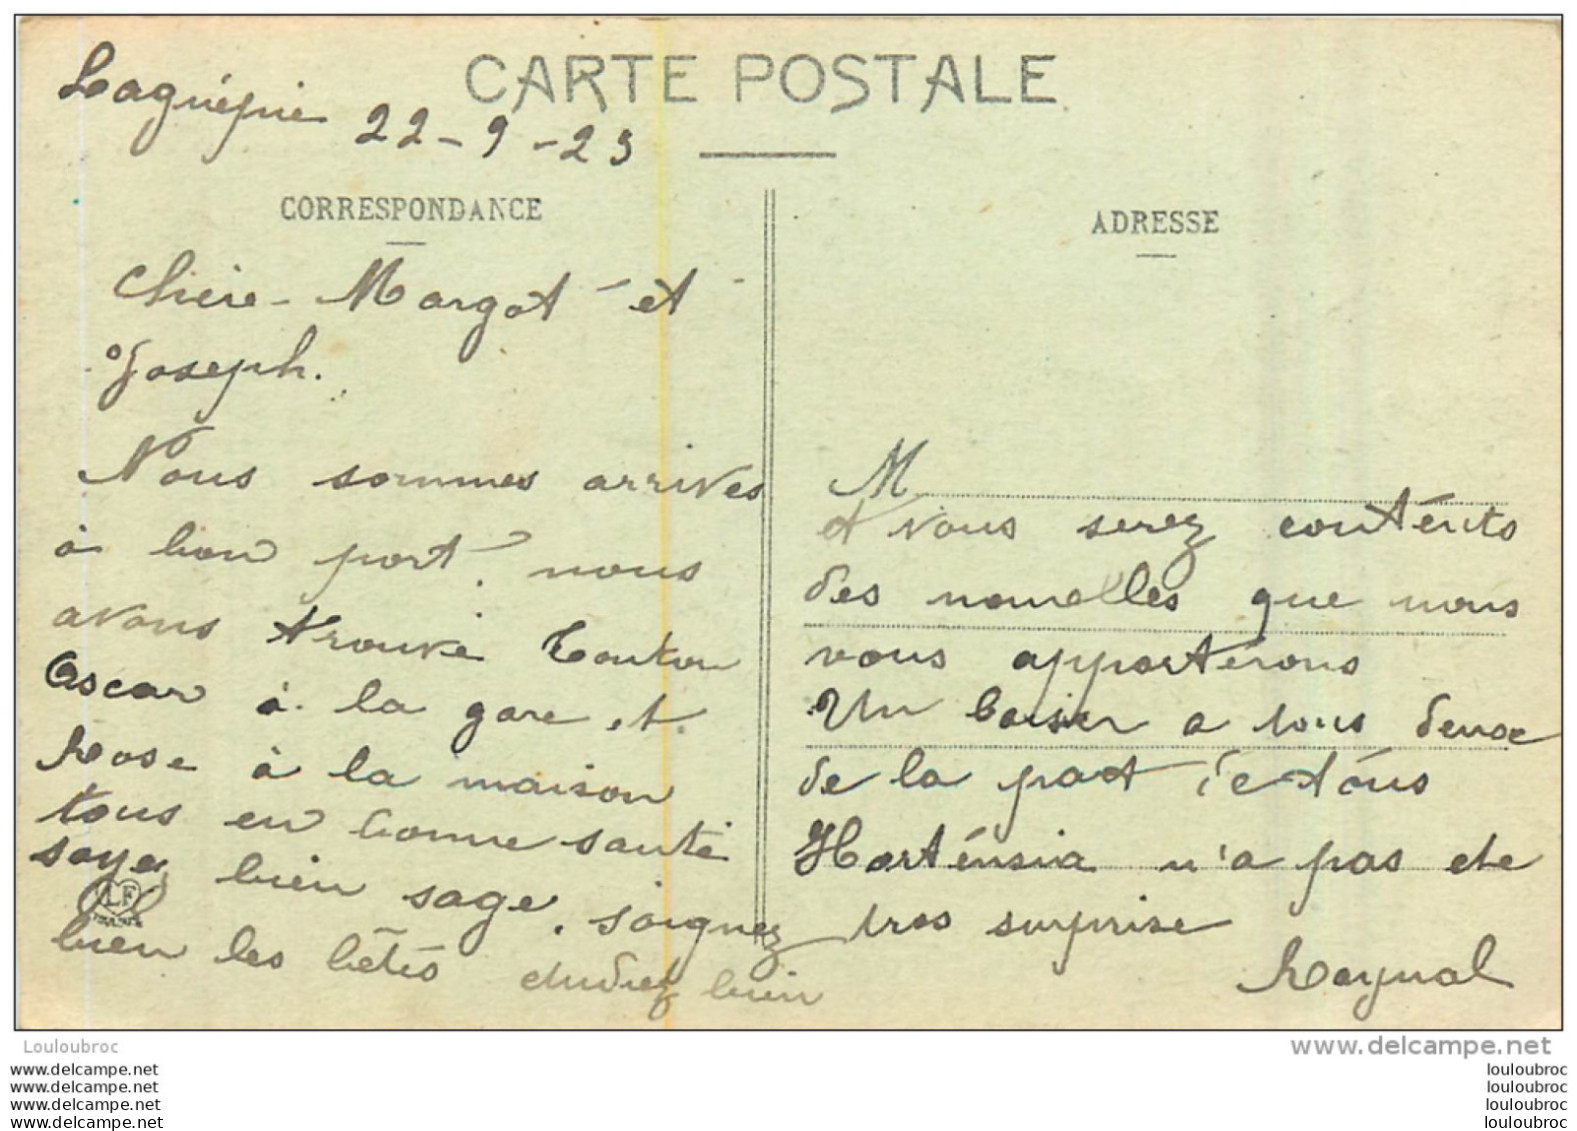 CARTE POSTALE
Laguépie 22-9-23
CORRESPONDANCE
Chère - Margot et
Joseph.
Nous sommes arrives
à bon port, nous
avons trouvé Tonton
Oscar à la gare et
Rose à la maison
tous en bonne santé
soyez bien sage, soignez
bien les bêtes etudiez bien
ADRESSE
M
et vous serez contents
des nouvelles que nous
vous apporterons
Un baiser a tous deux
de la part de tous
Horténsia n'a pas ete
tres surprise
Raynal
LF
Louloubroc
www.delcampe.net
www.delcampe.net
www.delcampe.net
www.delcampe.net
www.delcampe.net
louloubroc
louloubroc
louloubroc
louloubroc